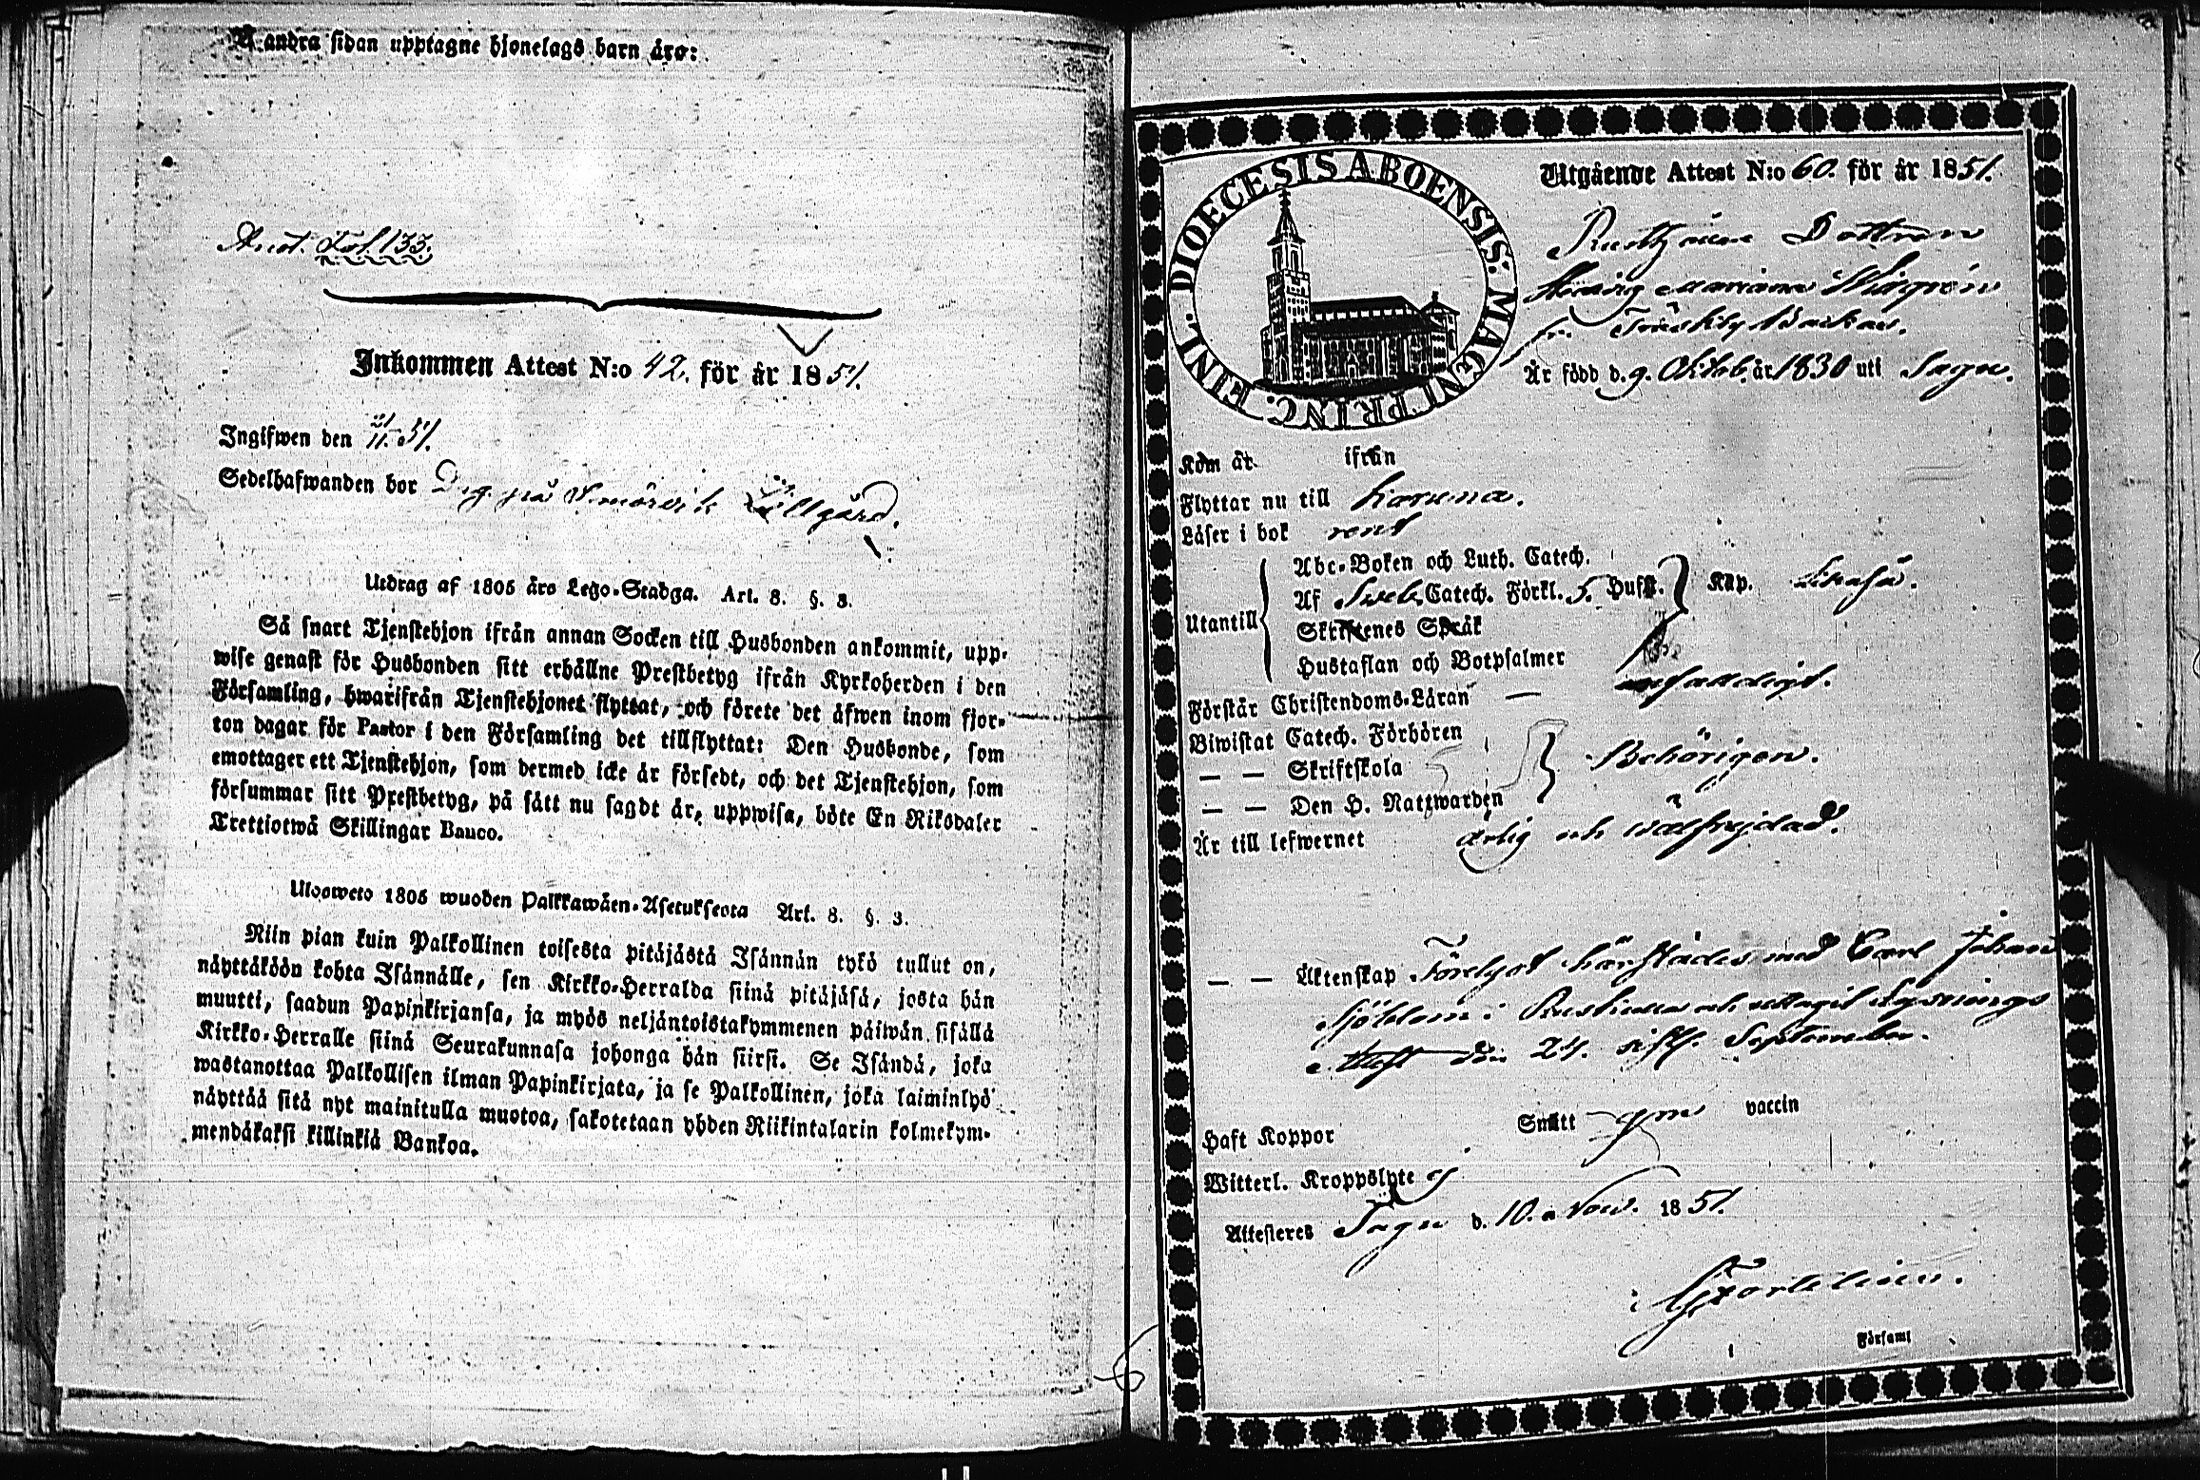 Å andra sidan upptagne hjonelags barn äro:
Anot. Fol. 133.
Inkommen Attest N:o 42. för år 1851.
Ingifwen den 21/11. 51.
Sedelhafwanden bor Drg. på Smörvik Lillgård.
Utdrag af 1805 års Lego-Stadga. Art. 8. §. 3.
Så snart Tjenstehjon ifrån annan Socken till Husbonden ankommit, upp-
wise genast för Husbonden sitt erhållne Prestbetyg ifrån Kyrkoherden i den
Församling, hwarifrån Tjenstehjonet flyttat, och förete det äfwen inom fjor-
ton dagar för Pastor i den Församling det tillflyttat: Den Husbonde, som
emottager ett Tjenstehjon, som dermed icke är försedt, och det Tjenstehjon, som
försummar sitt Prestbetyg, på sätt nu sagdt är, uppwisa, böte En Riksdaler
Trettiotwå Skillingar Banco.
Ulosweto 1805 wuoden Palkkawäen-Asetuksesta Art. 8. §. 3.
Niin pian kuin Palkollinen toisesta pitäjästä Isännän tykö tullut on,
näyttäköön kohta Isännälle, sen Kirkko-Herralda siinä pitäjäsä, josta hän
muutti, saadun Papinkirjansa, ja myös neljäntoistakymmenen päiwän sisällä
Kirkko-Herralle siinä Seurakunnasa johonga hän siirsi. Se Isändä, joka
wastanottaa Palkollisen ilman Papinkirjata, ja se Palkollinen, joka laiminlyö
näyttää sitä nyt mainitulla muotoa, sakotetaan yhden Riikintalarin kolmekym-
mendäkaksi killinkiä Bankoa.
DIOECESIS ABOENSIS: MAGNI PRINC. FINL.
Utgående Attest N:o 60. för år 1851.
Dottren
Hedvig Mariana Widgrén
fr. Träskby Backas.
Är född d. 9. Oktob. år 1830 uti Sagu.
Kom år ifrån
Flyttar nu till Karuna.
Läser i bok rent
Utantill
Abc-Boken och Luth. Catech.
Af Sveb. Catech. Förkl. 5. Hufst. Kap.
Skriftenes Språk
Hustaflan och Botpsalmer
Förstår Christendoms-Läran — enfaldigt.
Biwistat Catech. Förhören
— — Skriftskola Behörigen.
— — Den H. Nattwarden
Är till lefwernet ärlig och wälfrejdad.
— — Äktenskap Förelyst härstädes med Carl Johan
Sjöblom i och uttagit Lysnings
Attest den 24. sistl. September.
Haft Koppor Smitt gm vaccin
Witterl. Kroppslyte ej
Attesteres Sagu d. 10. Nov. 1851.
i Församl